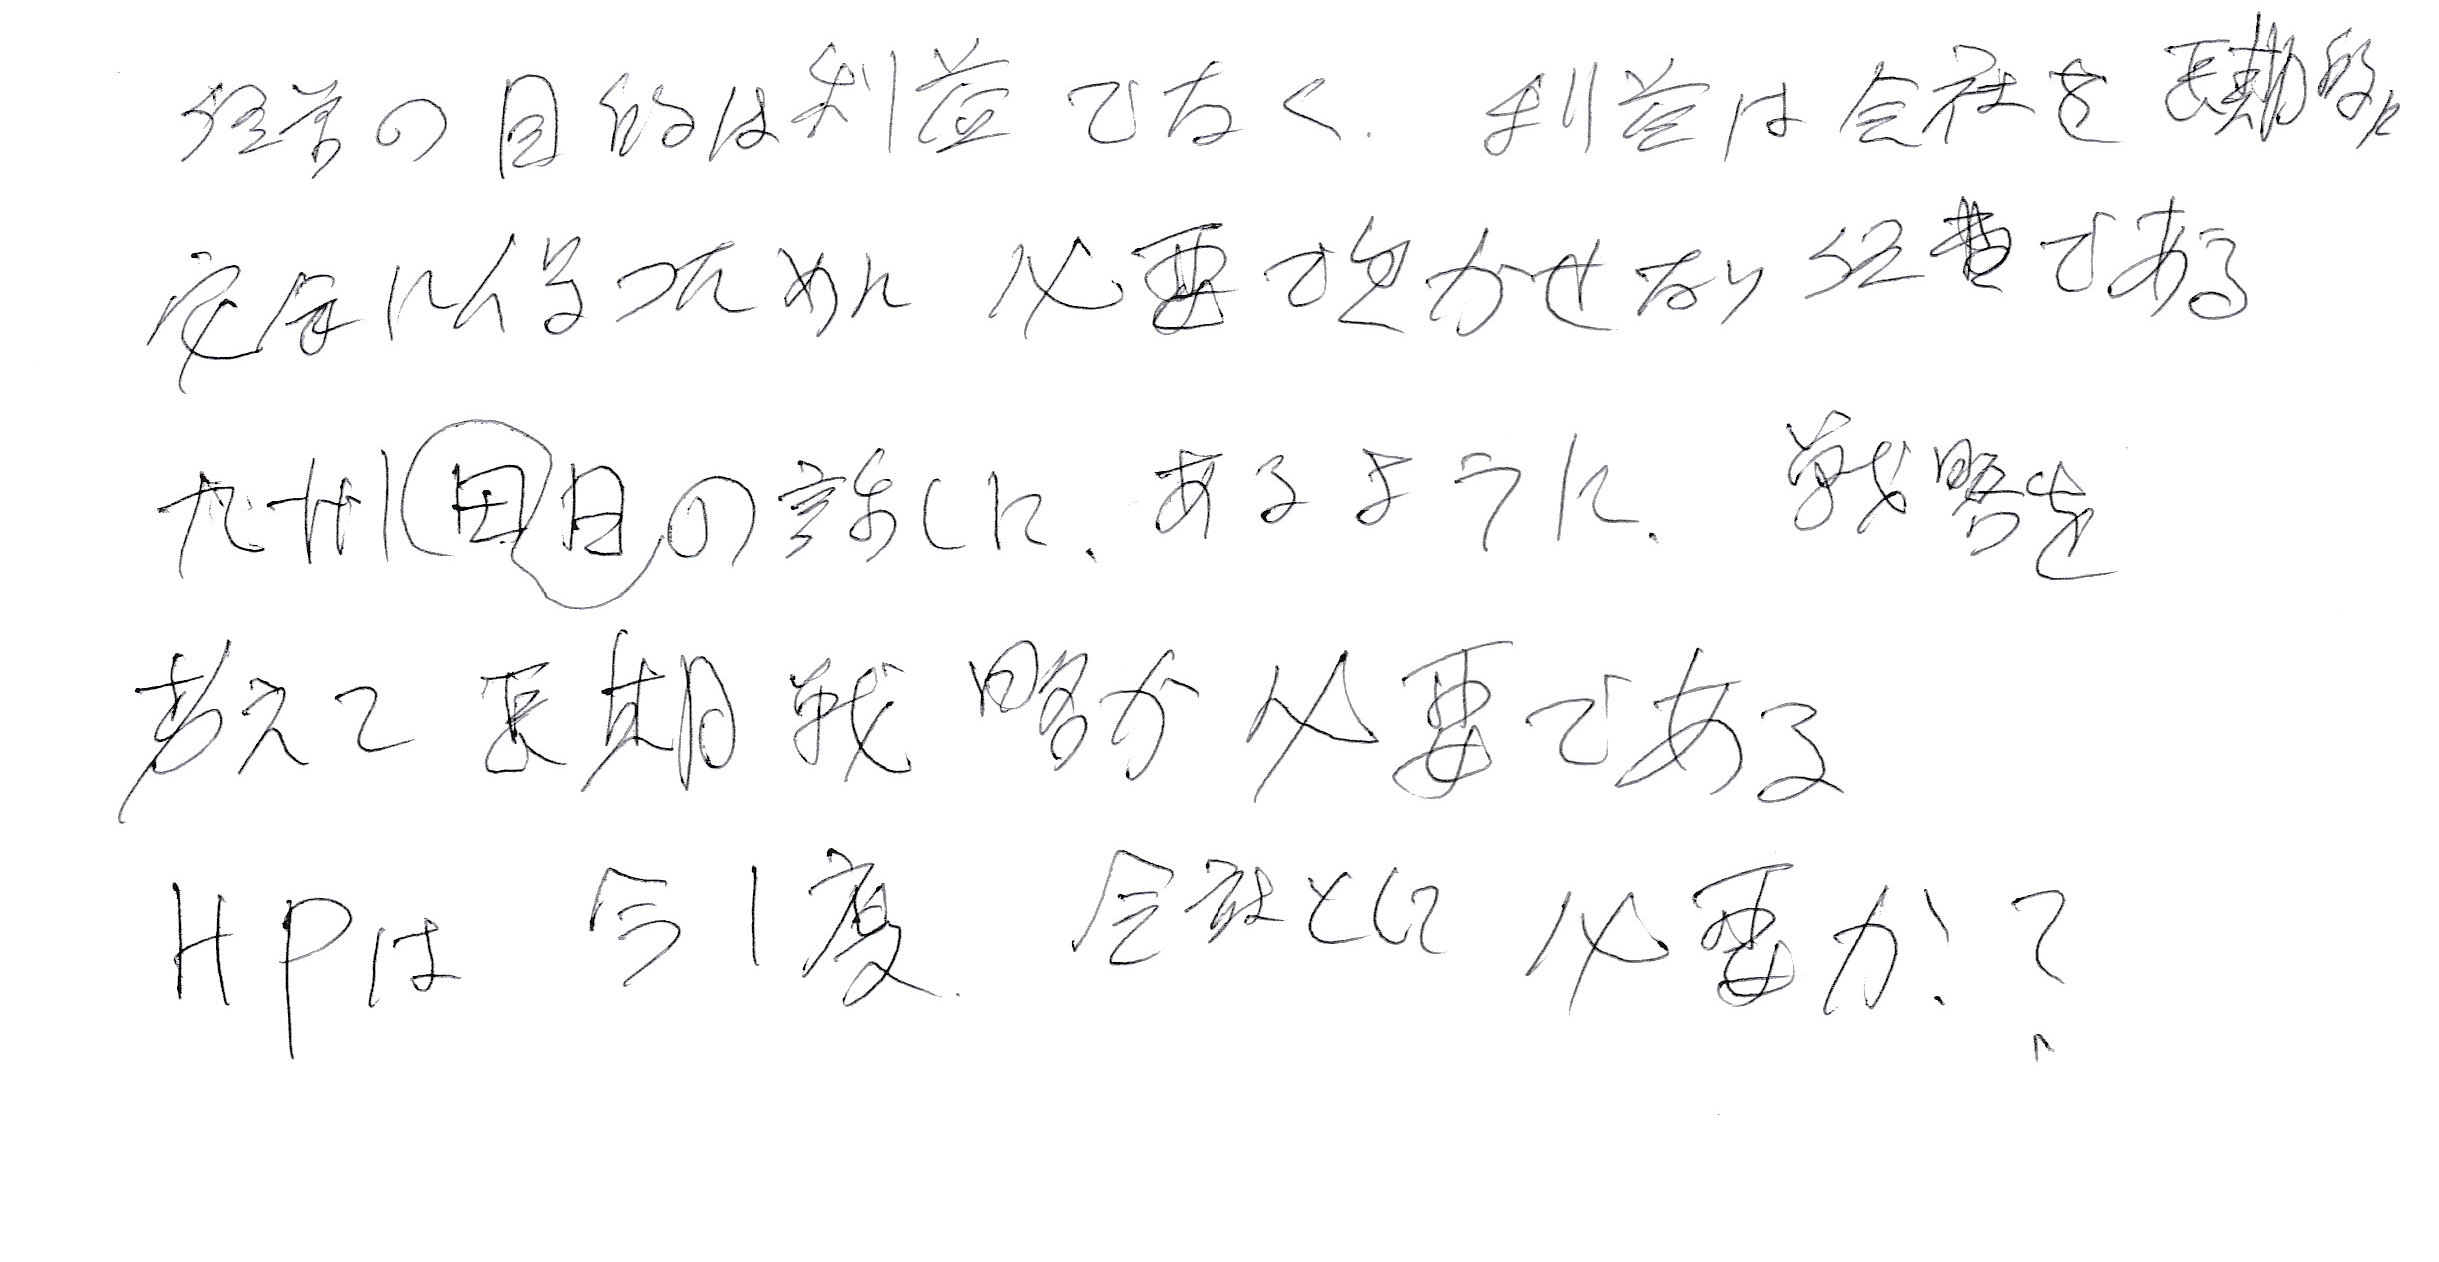 経営の目的は利益でなく、利益は会社を長期的に
安全に保つために必要で欠かせない経費である
九州田日の話しに、あるように、戦略を
考えて長期戦略が必要である
HPは今1度、会社として必要か!?